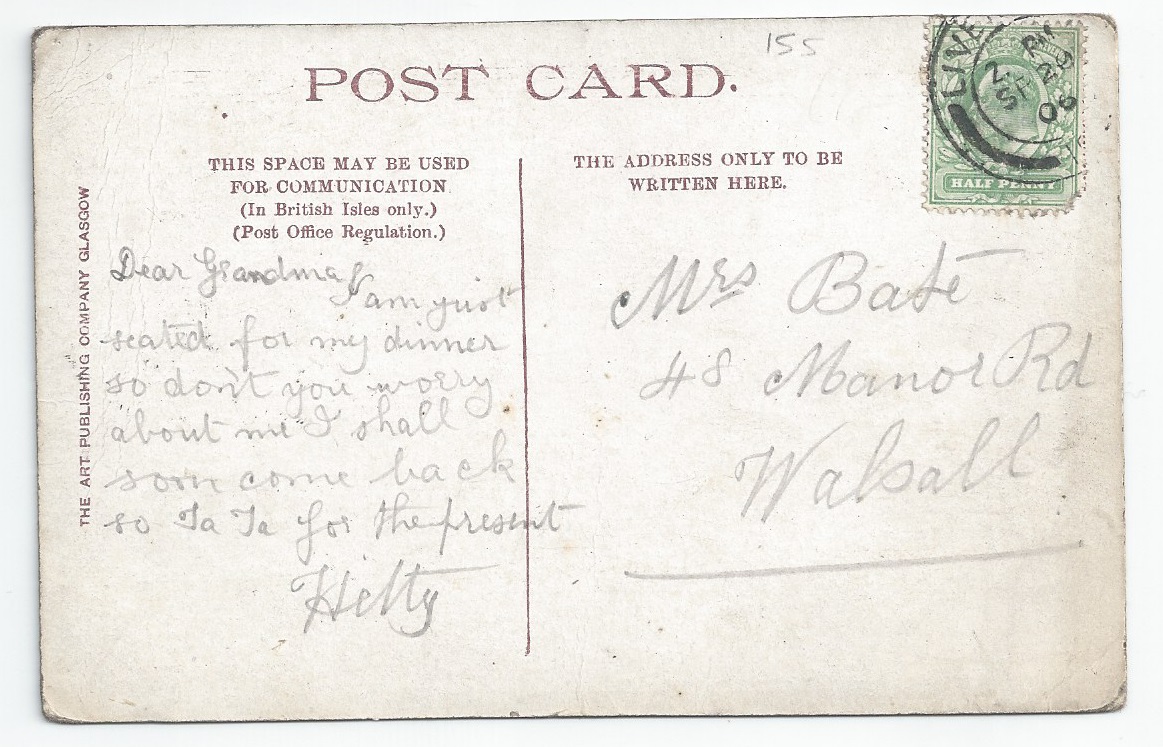 155
POST CARD.
THIS SPACE MAY BE USED
FOR COMMUNICATION
(In British Isles only.)
(Post Office Regulation.)
THE ADDRESS ONLY TO BE
WRITTEN HERE.
THE ART PUBLISHING COMPANY GLASGOW
LIVE
PM
SP 29
06
HALF PENNY
Dear Grandma
I am just
seated for my dinner
so don't you worry
about me I shall
soon come back
so Ta Ta for the present
Hetty
Mrs Bate
48 Manor Rd
Walsall